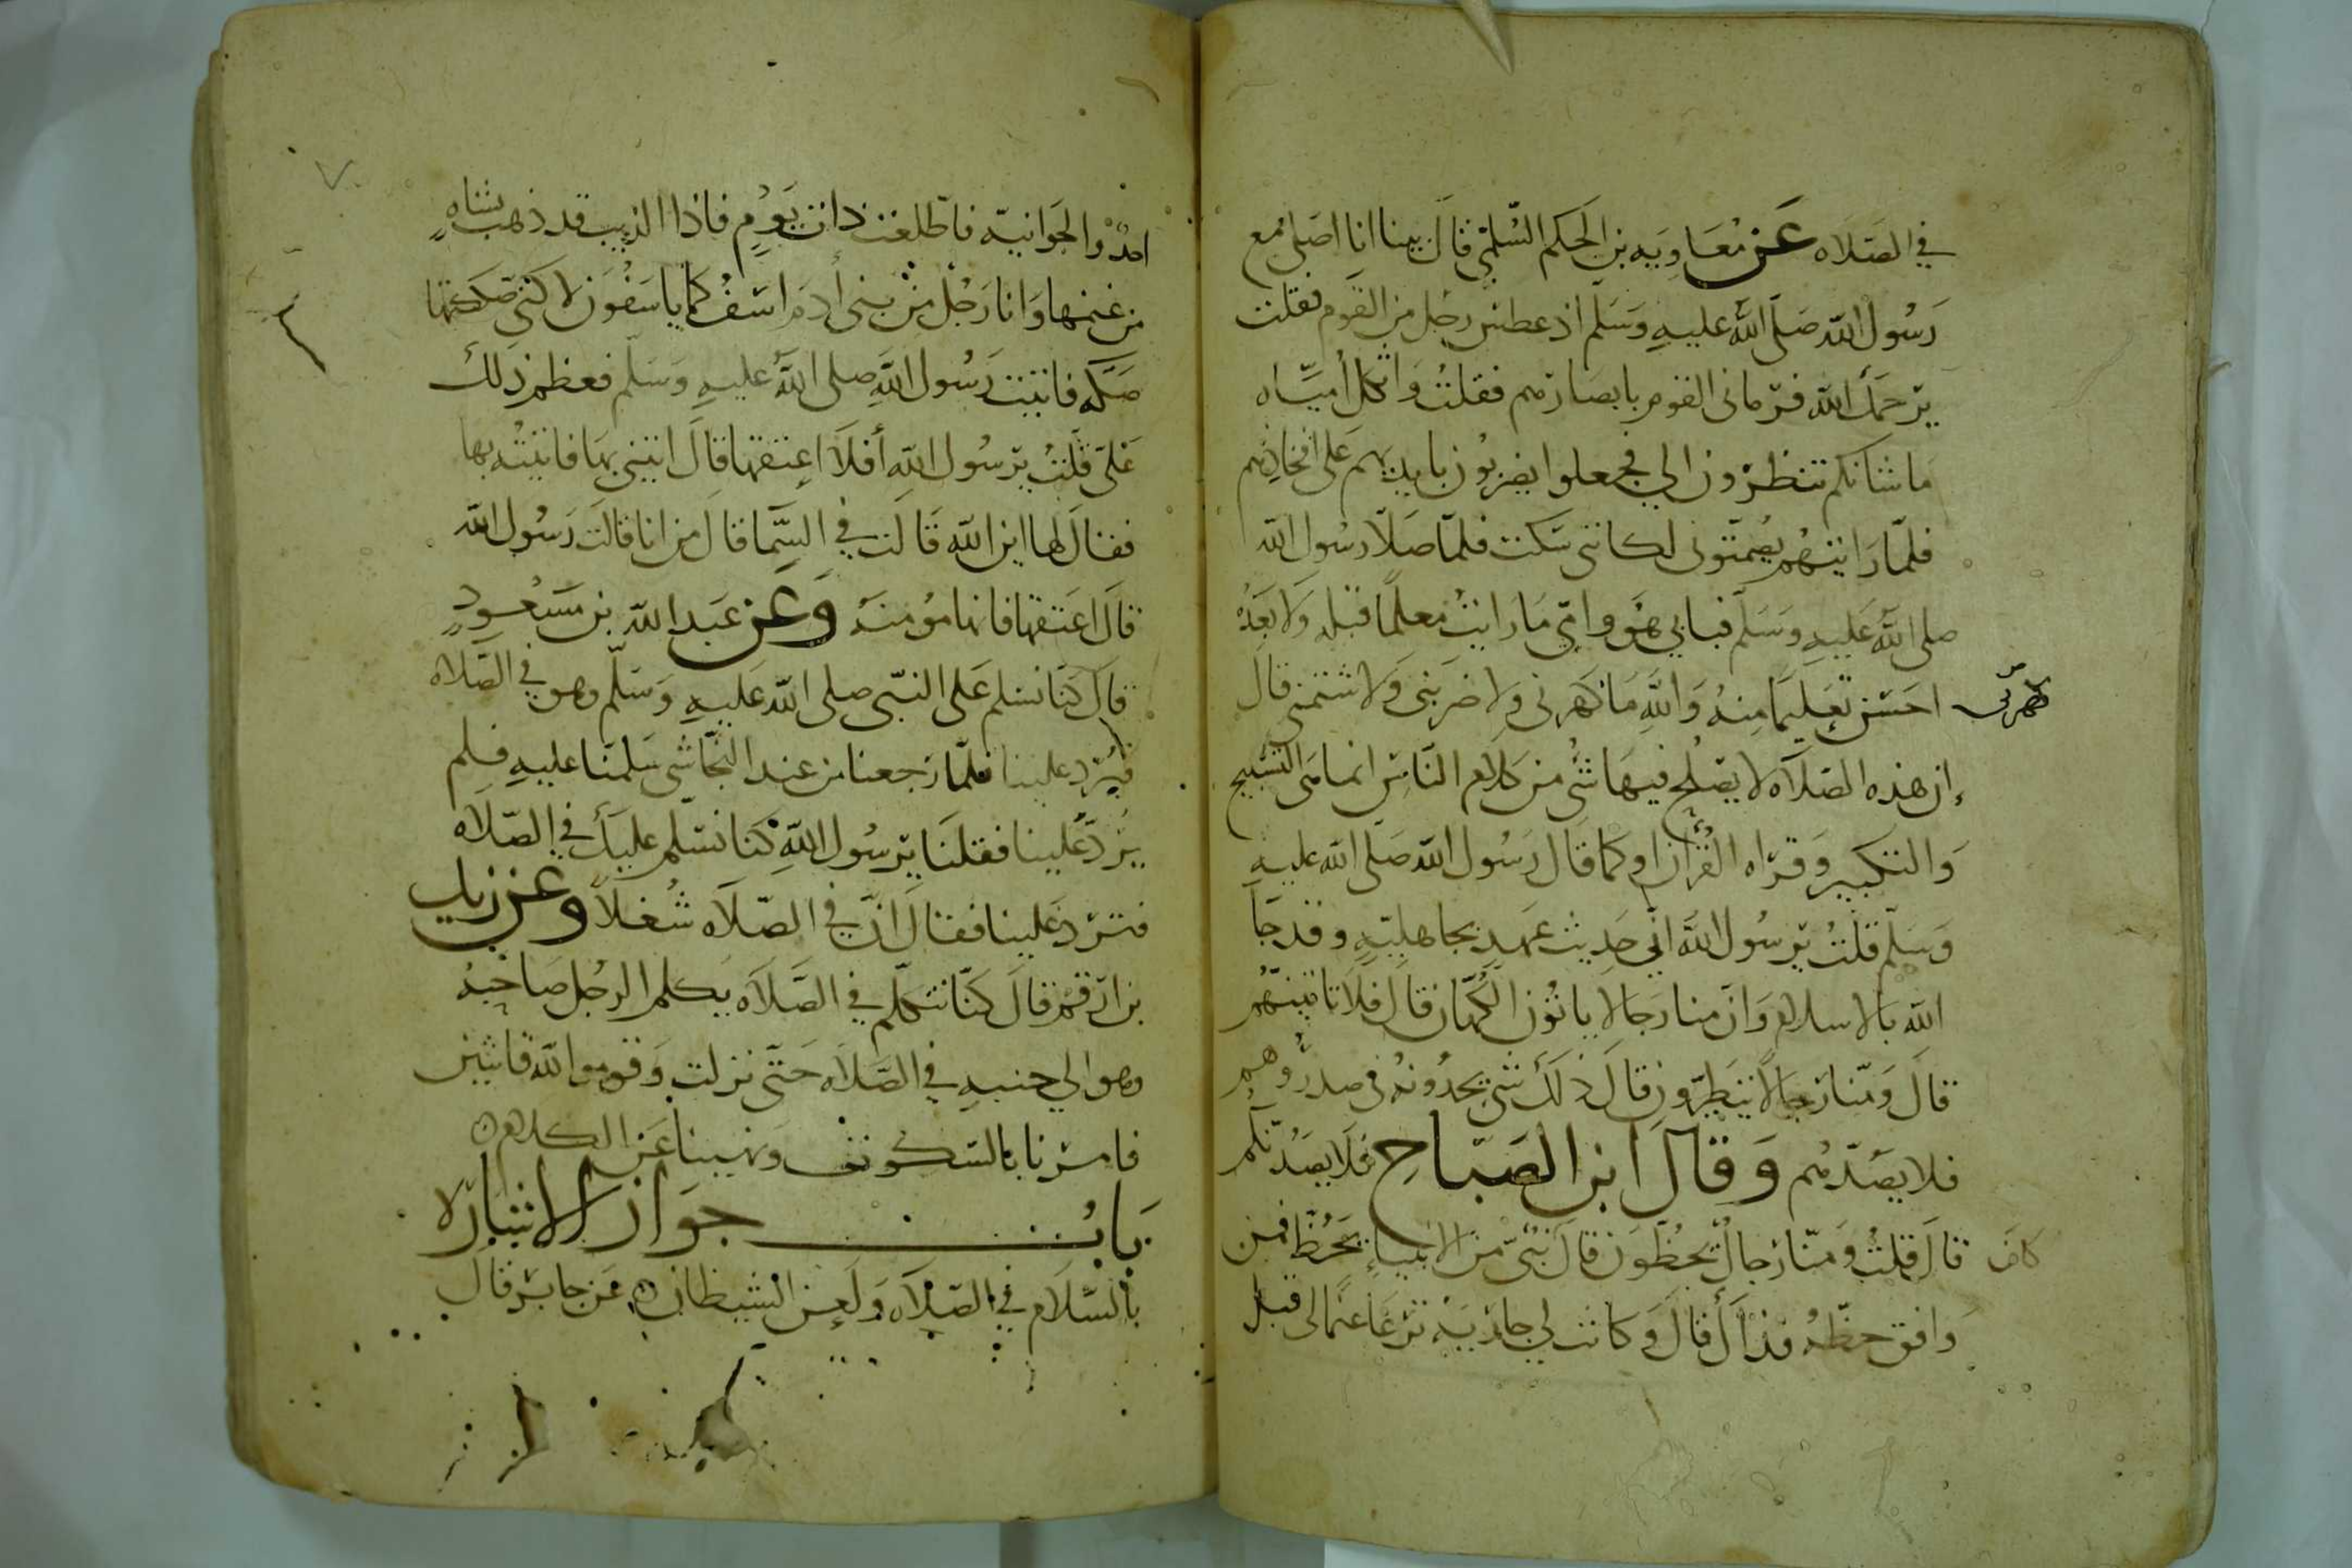 في الصَلَاه عَن مُعَاوِيَه بن الحَكم السُّلَمي قالَ بينا انا اصَلي مع
رَسُول الله صَلى الله عليهِ وَسَلم اذ عطس رجُل من القَوم فقلت
يرَحمَك الله فرَماني القوم بابصَارهم فقلتُ واثكل اُميّاه
ما شانكم تنظرُون الي فجعلوا يضربُون بايديهم عَلى افخاذِهم
فلمّا رَايتهُم يصُمتّوني لكاني سَكت فلمّا صَلّا رسُول الله
صلى الله عَليهِ وسَلم فبابي هُوَ وامّي مَا رَايتُ معلمًا قبله وَلا بَعدُه
احَسَن تعَليمًا مِنهُ وَاللهِ مَا كهَرني ولا ضرَبَني وَلا شتمني قال
كهرني
إن هذه الصَلاَه لا يصَلُح فيهَا شي من كلام النَاسِ انما هي التسَبيح
وَالتكبير وَقرَاه القُرآن اوكما قال رَسُول الله صَلى الله عليهِ
وَسَلم قلتُ يرَسُول الله اني حَدِيث عهدٍ بجاهليّهٍ وقد جَا
الله بالاسلام وَان منا رجَالا ياتوُن الكُهّان قالَ فلاَ تاتهُم
قالَ وَمنّا رجالاً يتطيرّون قالَ ذَلكَ شي يجدُونهُ في صدرُوهم
فلا يصَدّهُم وَقالَ ابن الصَبّاحِ فلَا يصَدُّنكم
كان قالَ قلتُ وَمنّا رجالٌ يخُطُّونَ قالَ نبيّ من الانبياءِ يخُط فمن
وَافق خطّهُ فذاَكَ قالَ وَكانت لي جاريَه ترعَا غنمًا لي قبل
احُدٍ والجَوانيّه فاطّلعت ذات يَوُمٍ فاذا الذيب قد ذهب بشاهٍ
من غنمها وَانا رَجُل مِن بني أدَمَ اسَفُ كما ياسَفُون لاكني صَككتها
صَكّه فاتيت رَسُول اللهِ صلى الله عليهِ وَسَلم فعظم ذَلك
عَليّ قلتُ يرَسُول اللهِ أفلاَ اعتقها قالَ ايتني بهَا فاتيتُه بها
فقالَ لها اين الله قَالت في السَّما قالَ من انا قالت رَسُول الله
قالَ اعَتقها فانها مؤمنَهُ وَعَن عَبد الله بن مَسعُودٍ
قالَ كنّا نسَلم عَلى النبّي صلى الله عَليهِ وَسَلم وهو في الصَّلاه
فيُرَد علينا فلمّا رَجعنا من عند النَجّاشي سَلمَنا عليهِ فلم
يَرُدّ عَلينا فقلنَا يرَسُول اللهِ كنَا نسَلم عليكَ في الصّلاه
فترَد عَلينا فقالَ انّ في الصّلاَه شُغلاً وعَن زيد
بن ارَقم قالَ كنّا نتكلّم في الصَّلاَه يكلم الرجُل صَاحبَهُ
وهو الي جنبهِ في الصَّلاه حَتّى نزلت وَقوموا لله قانتين
فامرنا بالسّكوت وَنهينا عَن الكلام
بَابُ جوَاز الاشارَه
بالسّلاَم في الصَّلاَه وَلَعن الشيطان عَن جابر قال